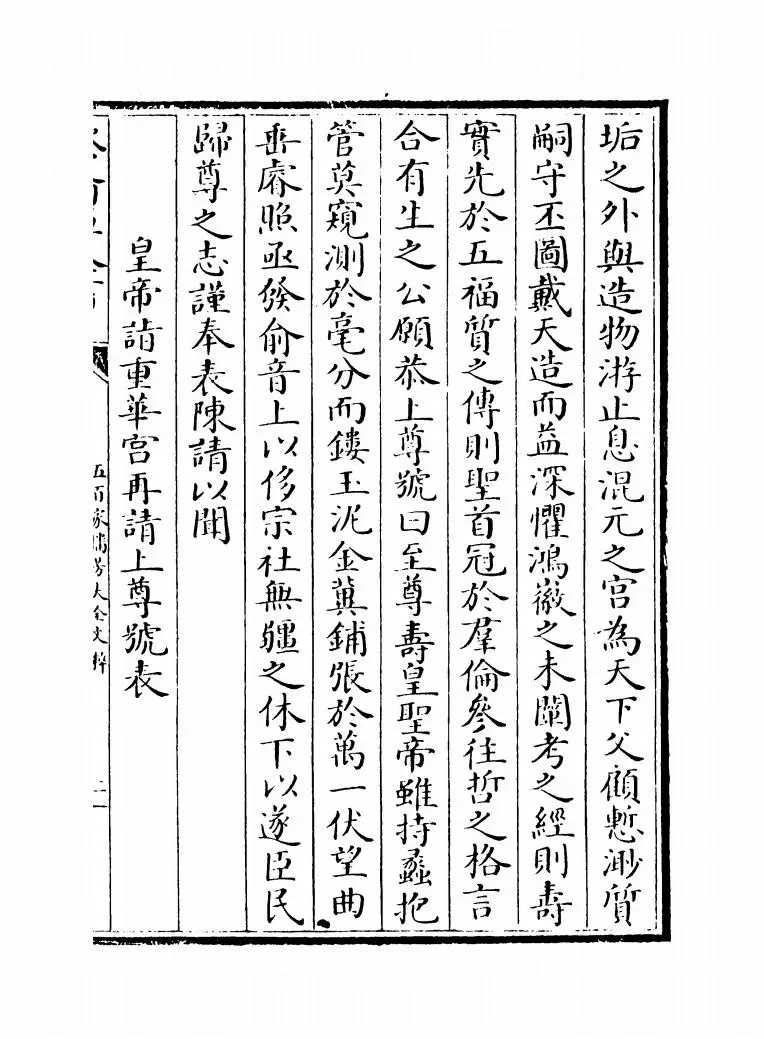 垢之外與造物游止息混元之宫為天下父顧慙渺質
嗣守丕圖戴天造而益深懼鴻徽之未闡考之經則壽
實先於五福質之傳則聖首冠於羣倫參往哲之格言
合有生之公願恭上尊號曰至尊壽皇聖帝雖持蠡抱
管莫窺測於毫分而鏤玉泥金冀鋪張於萬一伏望曲
垂睿照亟發俞音上以侈宗社無疆之休下以遂臣民
歸尊之志謹奉表陳請以聞
皇帝請重華宫再請上尊號表
五百家播芳大全文粹
二